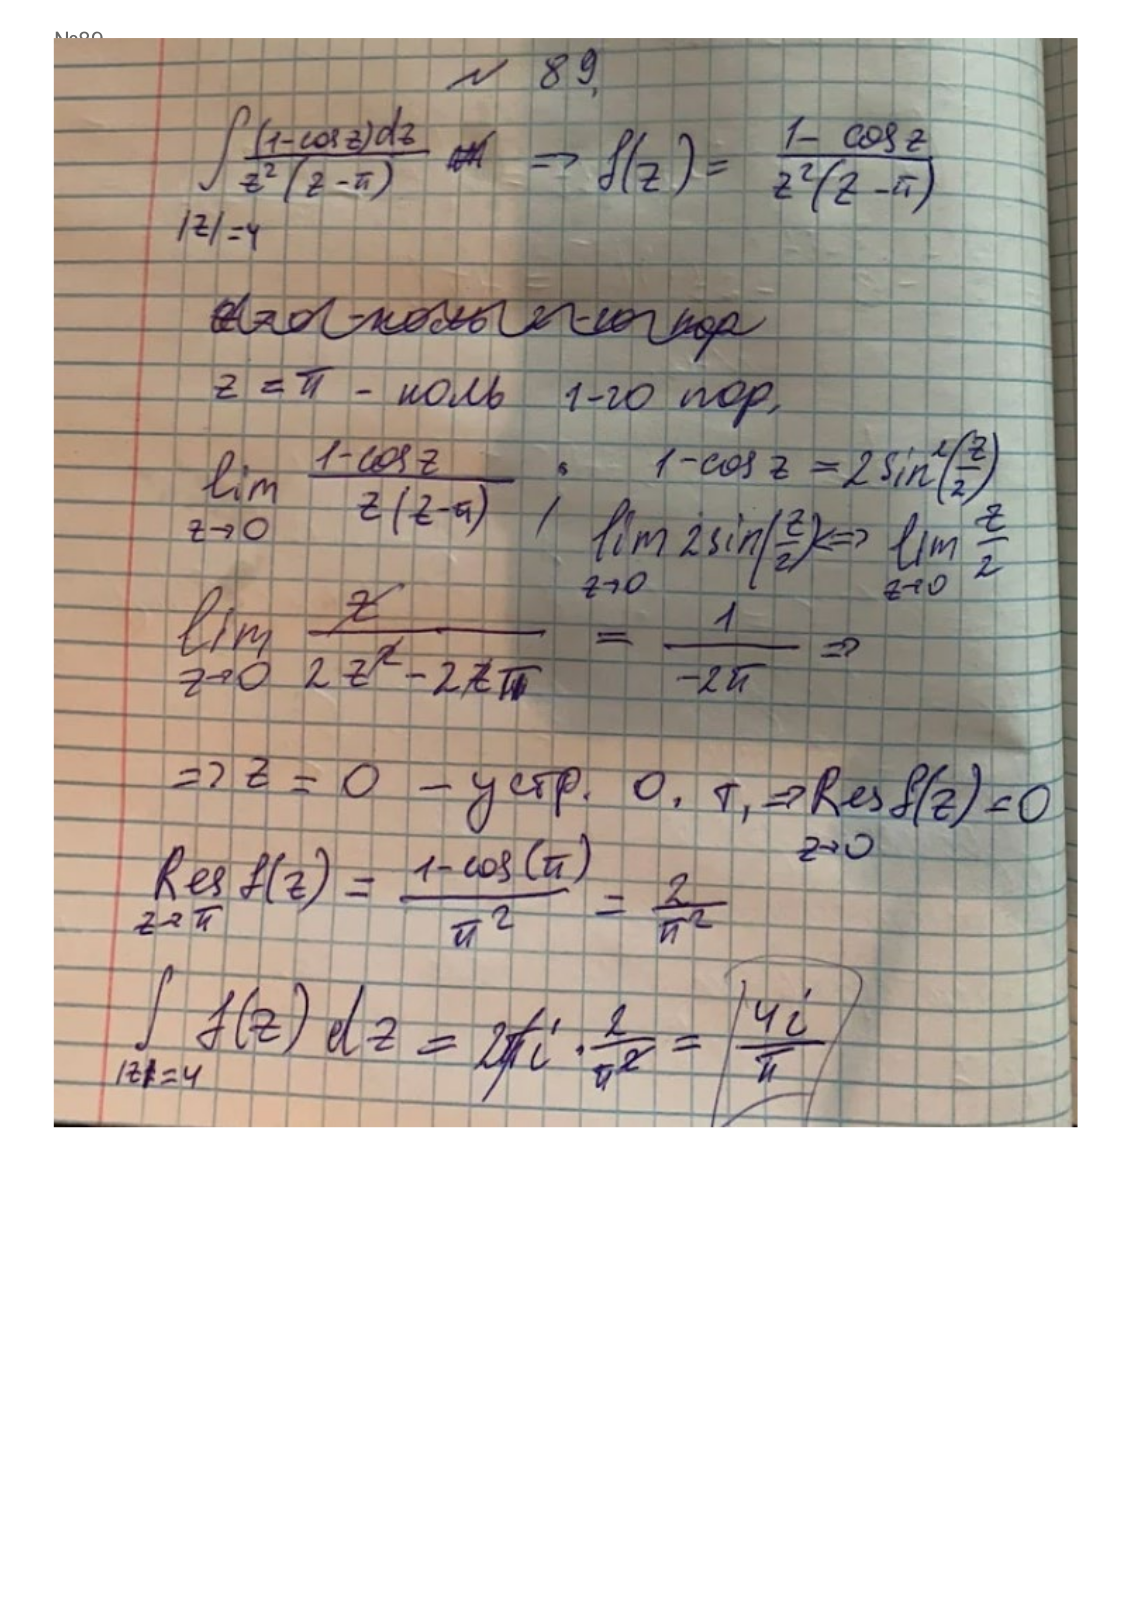 №89
№ 89.
∫ (1-cos z)dz / z²(z-π) => f(z) = 1- cos z / z²(z-π)
|z|=4
z = π - ноль 1-го пор.
lim 1-cos z / z(z-π) ; 1-cos z = 2 sin²(z/2)
z→0
lim 2sin(z/2) <=> lim z/2
z→0 z→0
lim z / 2z² - 2zπ = 1 / -2π =>
z→0
=> z = 0 - устр. о. т. => Res f(z) = 0
z→0
Res f(z) = 1-cos(π) / π² = 2 / π²
z→π
∫ f(z) dz = 2πi · 2 / π² = 4i / π
|z|=4